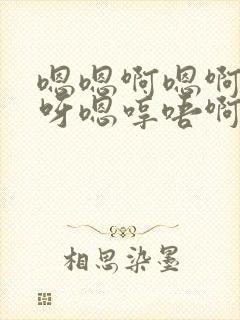 嗯嗯啊嗯啊
呀嗯哼唔啊
相思染墨